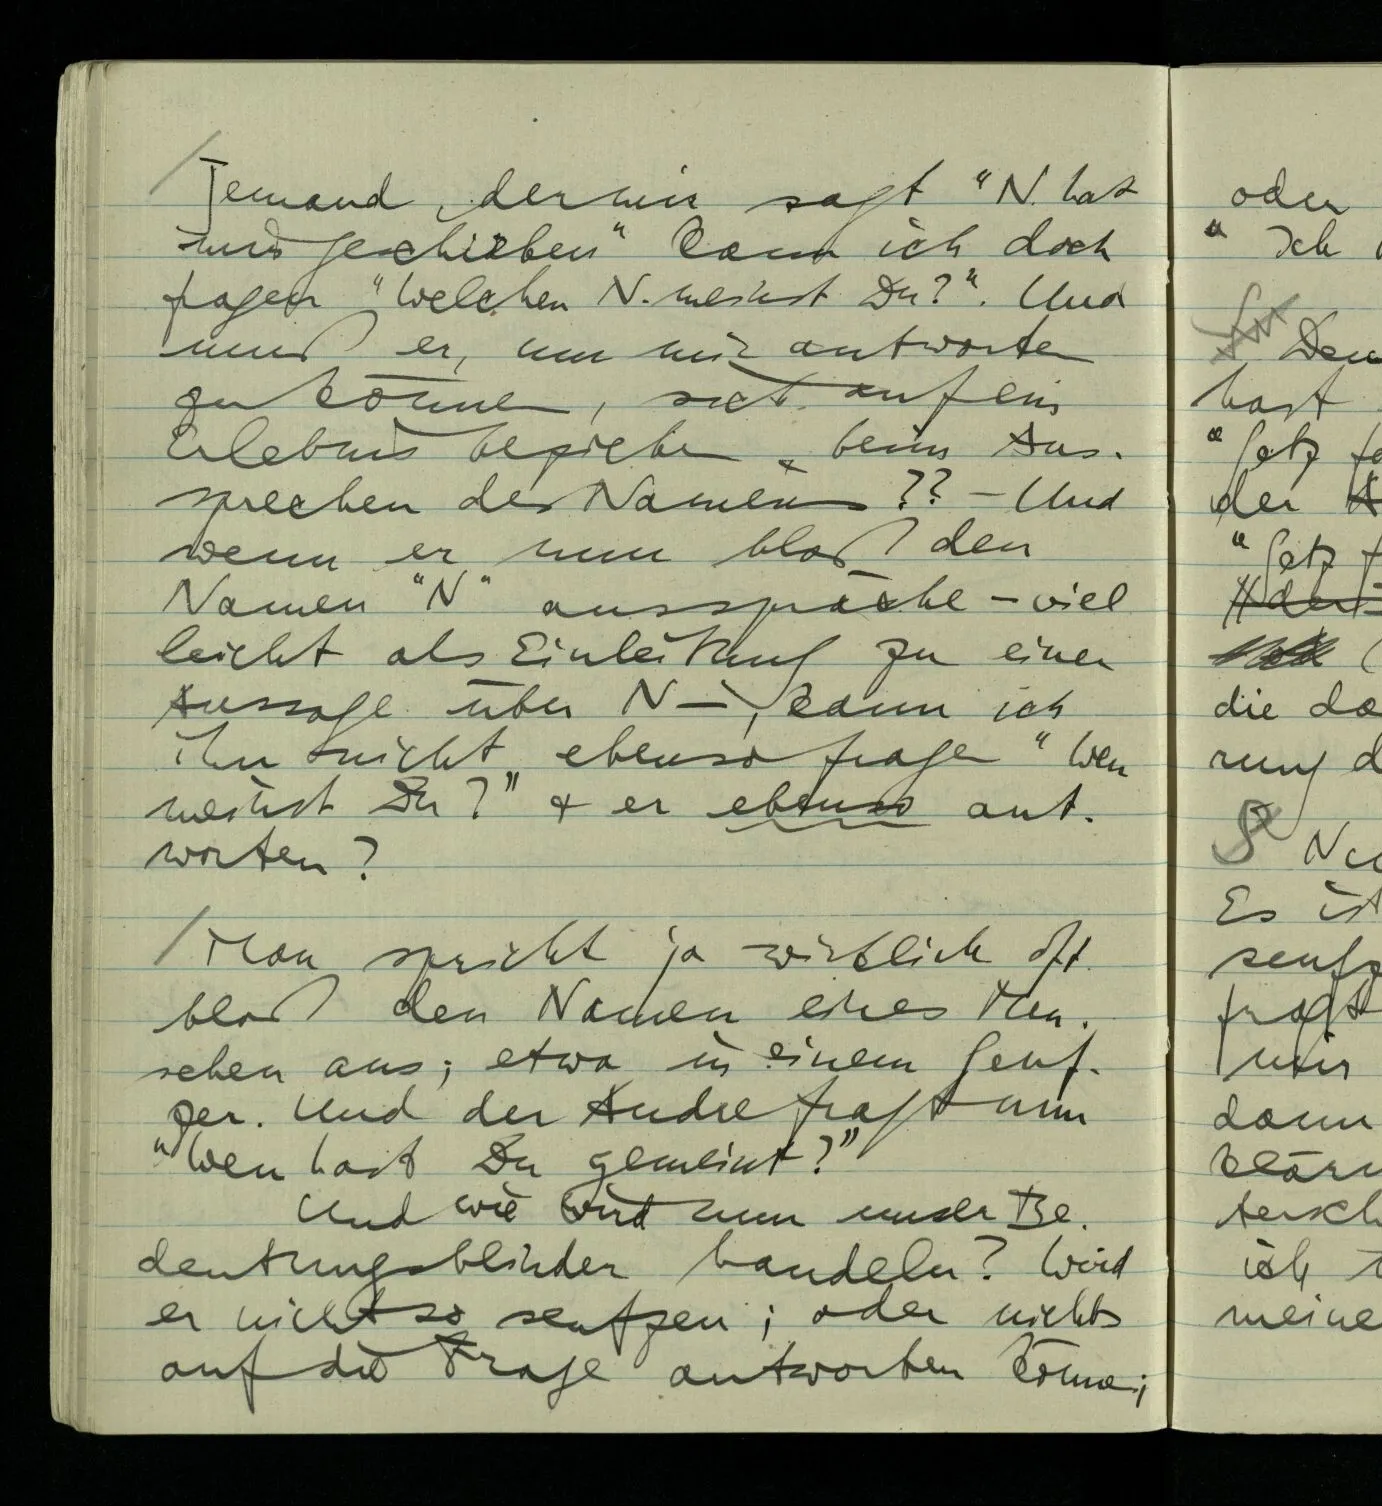 / Jemand, der mir sagt "N. hat
mir geschrieben" kann ich doch
fragen "Welchen N. meinst Du?". Und
muß er, um mir antworten
zu können, sich auf ein
Erlebnis beziehen beim Aus-
sprechen des Namens?? – Und
wenn er nun bloß den
Namen "N" ausspräche – viel
leicht als Einleitung zu einer
Aussage über N –, kann ich
ihn nicht ebenso fragen "Wen
meinst Du?" & er ebenso ant-
worten?
/ Man spricht ja wirklich oft
bloß den Namen eines Men-
schen aus; etwa in einem Seuf-
zer. Und der Andre fragt nun
"Wen hast Du gemeint?"
Und wie wird nun unser Be-
deutungsblinder handeln? Wird
er nicht so seufzen; oder nichts
auf die Frage antworten können;
oder
" Ich
Den
hast
"Jetz
der
"Jetz
die da
rung d
Nu
Es ist
seufz
fragt
mir
dann
klär
tersch
ich
meine